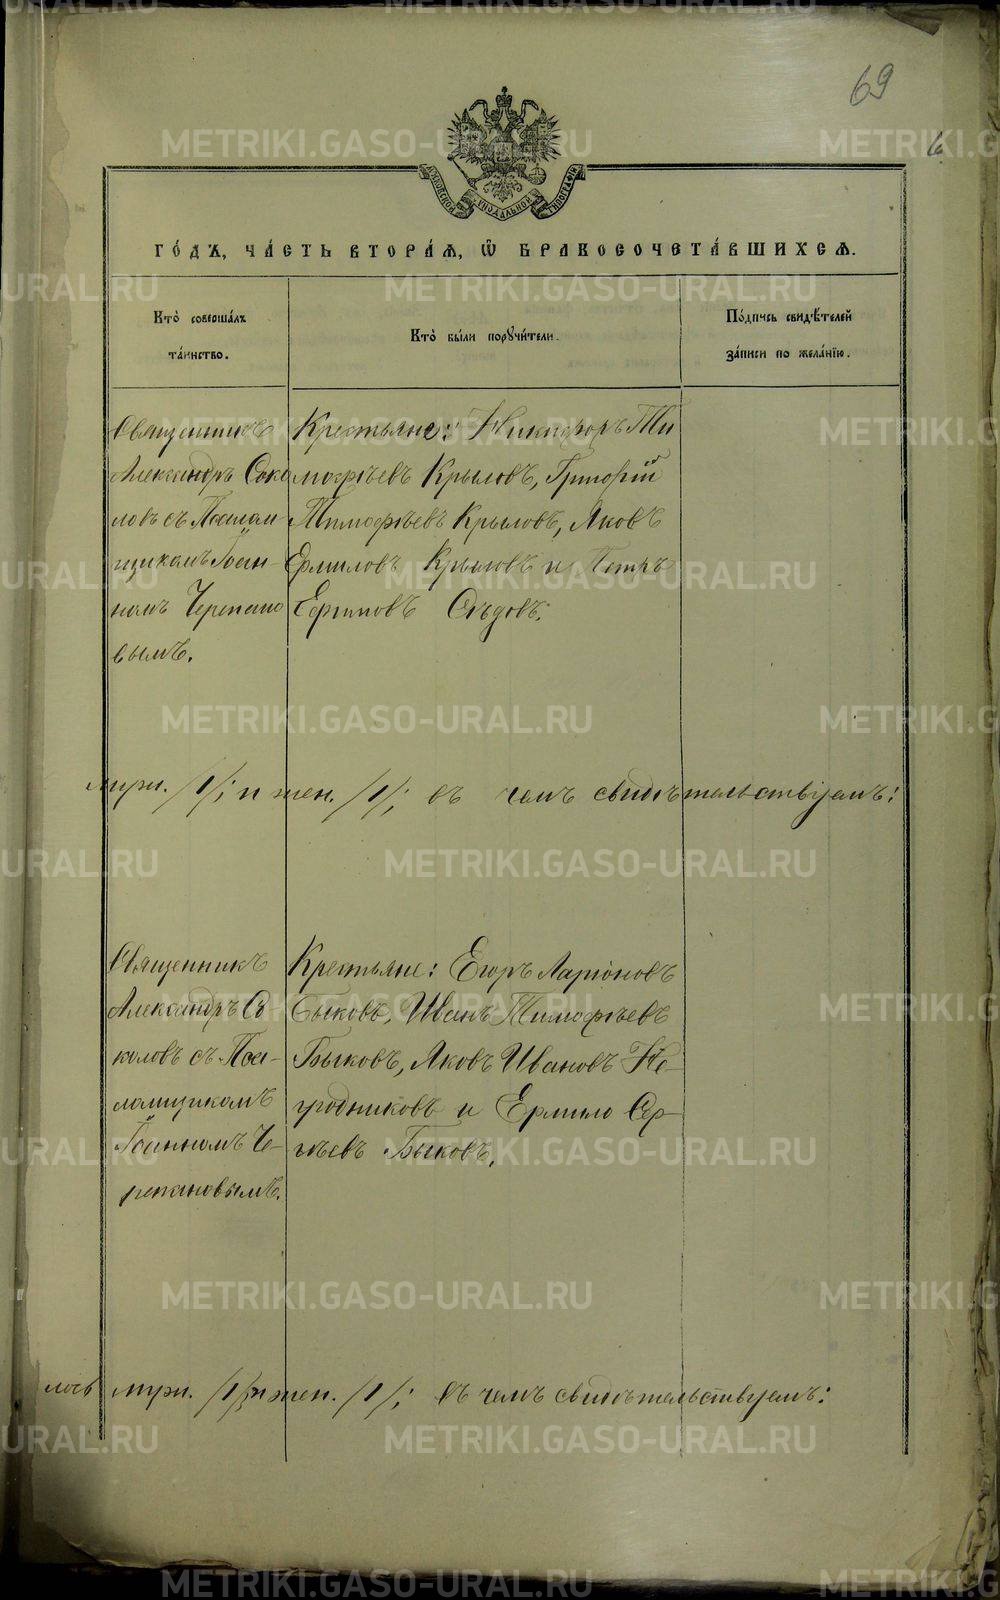 69
6
МОСКОВСКОЙ СѴНОДАЛЬНОЙ ТИПОГРАФІИ
ГО́ДЪ, ЧА́СТЬ ВТОРА́Ѧ, Ѽ БРАКОСОЧЕТА́ВШИХСѦ.
Кто̀ соверша́лъ
та́инство.
Кто̀ бы́ли поручи́тели.
По́дпись свидѣ́телей
за́писи по жела́нію.
Священникъ
Александръ Соко
ловъ съ Псалом-
щикомъ Іоан-
номъ Черепано
вымъ.
Крестьяне: Никифоръ Ти
мофѣевъ Крыловъ, Григорій
Тимофѣевъ Крыловъ, Яковъ
Ермиловъ Крыловъ и Петръ
Ефимовъ Сѣдовъ.
муж. /1/; и жен. /1/; въ чемъ свидѣтельствуемъ:
Священникъ
Александръ Со
коловъ съ Пса-
ломщикомъ
Іоанномъ Че-
репановымъ.
Крестьяне: Егоръ Ларіоновъ
Быковъ, Иванъ Тимофѣевъ
Быковъ, Яковъ Ивановъ Не-
уродниковъ и Ермило Сер-
гѣевъ Быковъ.
лось муж. /1/ и жен. /1/; въ чемъ свидѣтельствуемъ:
METRIKI.GASO-URAL.RU